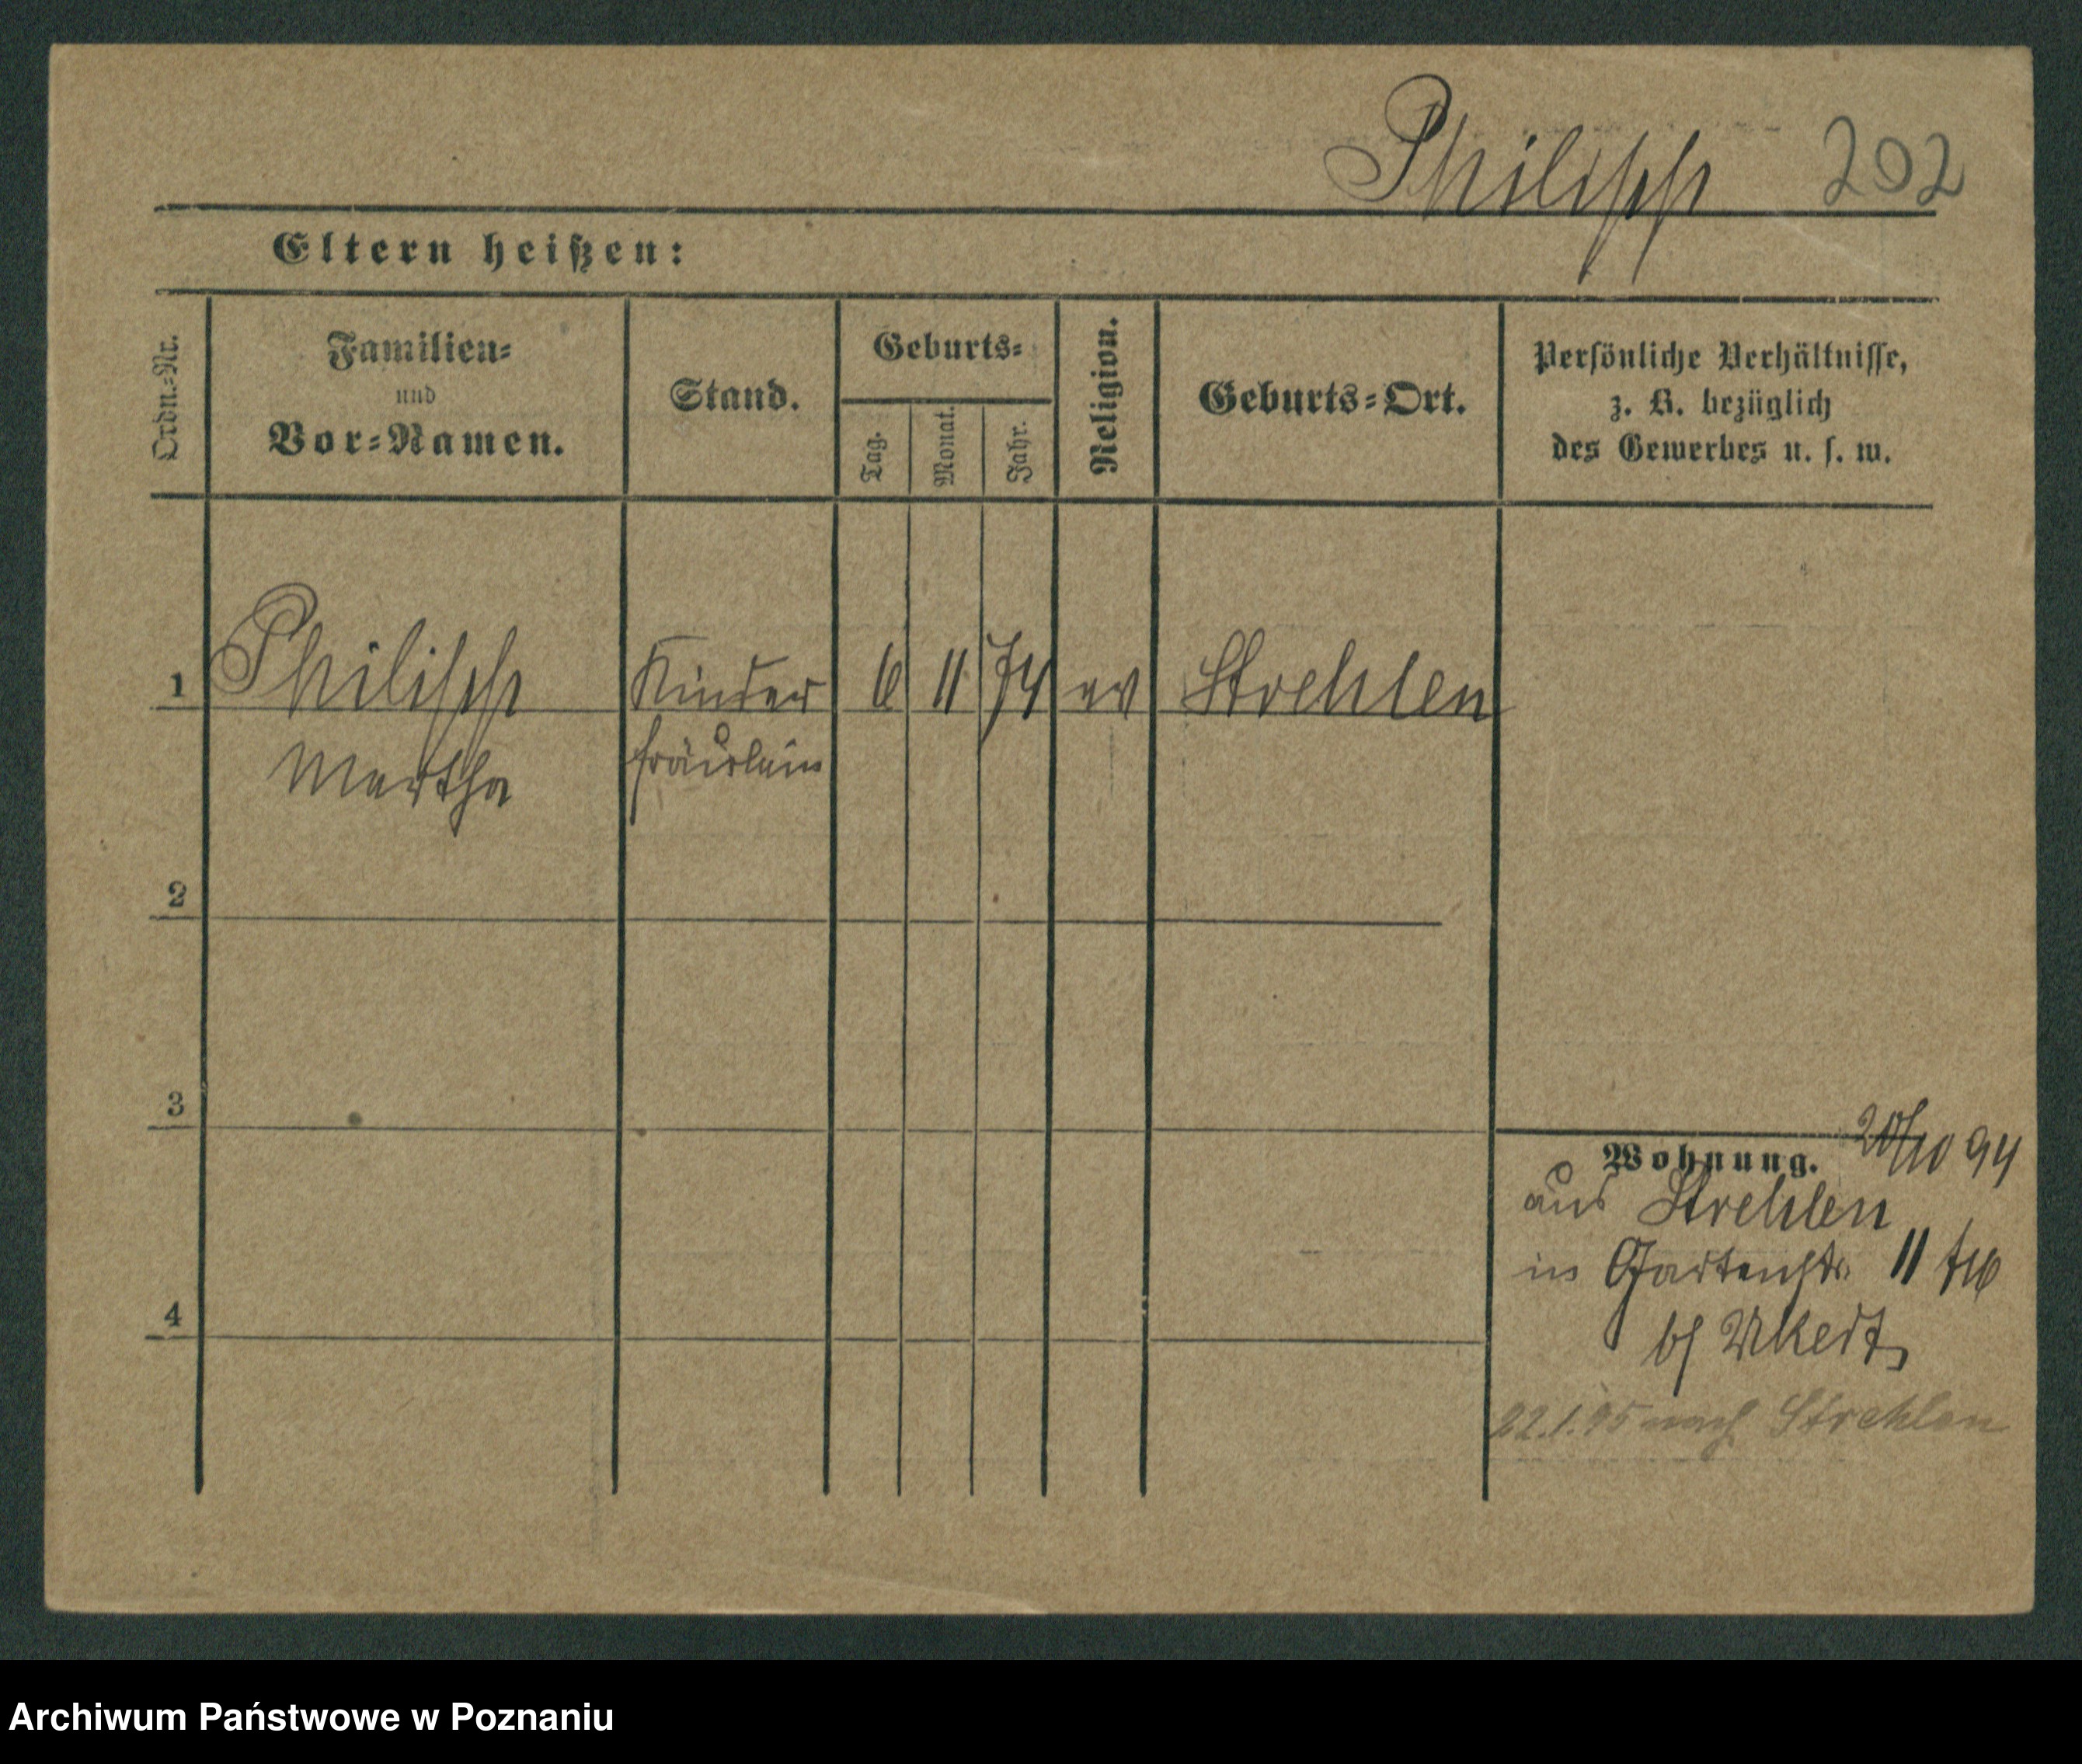 Philipp 202
Eltern heißen:
Ordn.-Nr.
Familien-
und
Vor-Namen.
Stand.
Geburts-
Tag.
Monat.
Jahr.
Religion.
Geburts-Ort.
Persönliche Verhältnisse,
z. B. bezüglich
des Gewerbes u. s. w.
1 Philipp Kinder 6 11 74 ev Strehlen
Martha fräulein
2
3
Wohnung. 20/10 94
aus Strehlen
in Gartenstr. 11
4
b/ Ukert
22.1.95 nach Strehlen
Archiwum Państwowe w Poznaniu